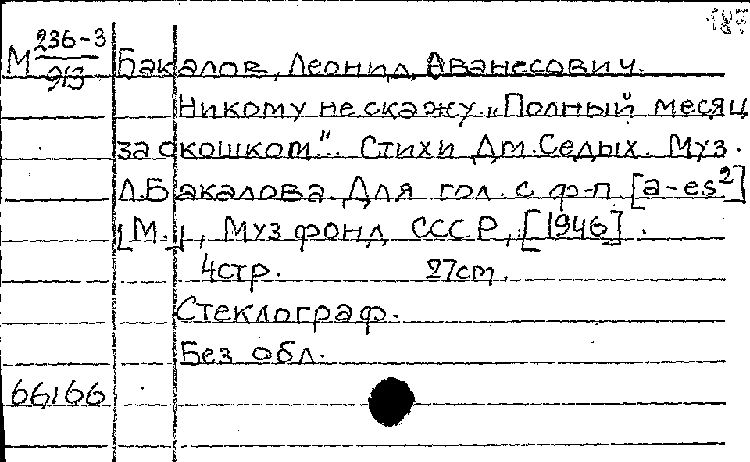 187
М 236-3/913 Бакалов, Леонид Аванесович.
Никому не скажу „Полный месяц
за окошком". Стихи Дм. Седых. Муз.
Л. Бакалова. Для гол. с ф-п. [a-es²]
[М.], Музфонд СССР, [1946].
4 стр. 27 cm.
Стеклограф.
Без обл.
66166